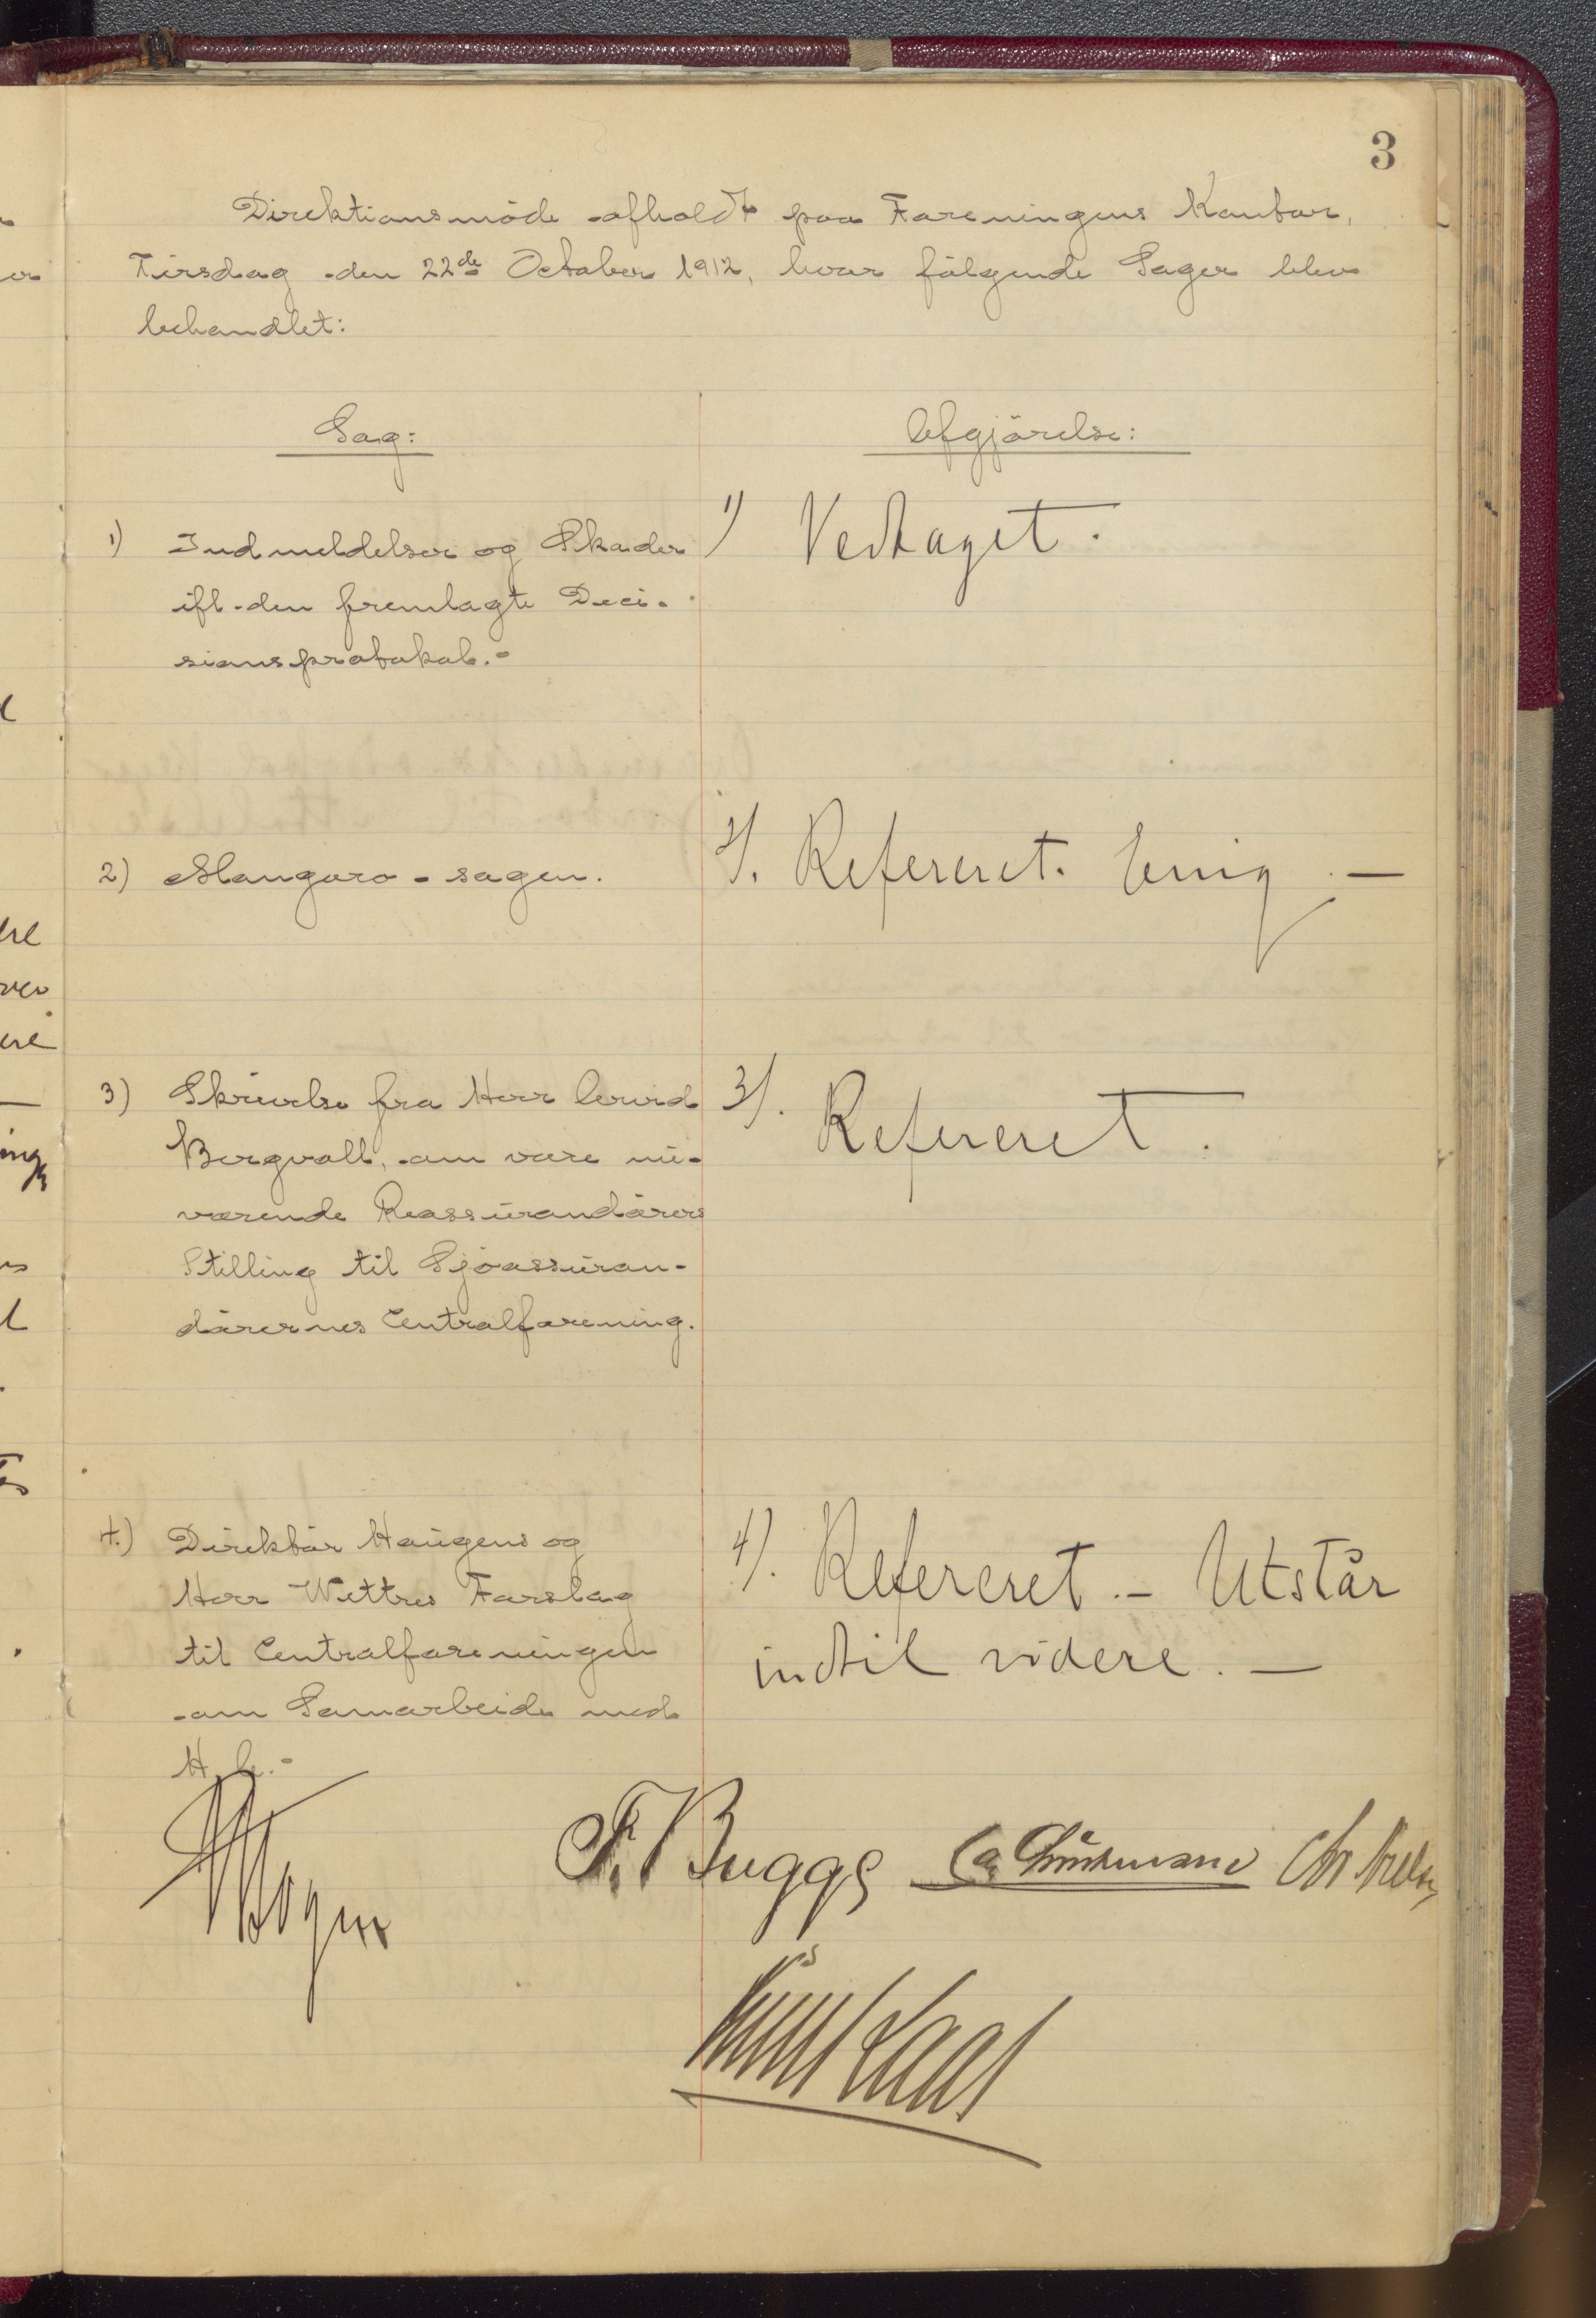 3
Direktionsmöde afholdt paa Foreningens Kontor,
Tirsdag den 22de October 1912, hvor fölgende Sager blev
behandlet:
Sag:
Afgjörelse:
1) Indmeldelser og Skader
ifl. den fremlagte Deci-
sionsprotokol.-
1) Vedtaget.
2) Mangoro-sagen.
2). Refereret. Enig.-
3) Skrivelse fra Herr Arvid
Bergvall, om vore nu-
værende Reassurandörers
Stilling til Sjöassuran-
dörernes Centralforening.
3). Refereret.
4.) Direktör Haugens og
Herr Wettres Forslag
til Centralforeningen
om Samarbeide med
H. A.-
4). Refereret.- Utstår
indtil videre.-
F. Bugge